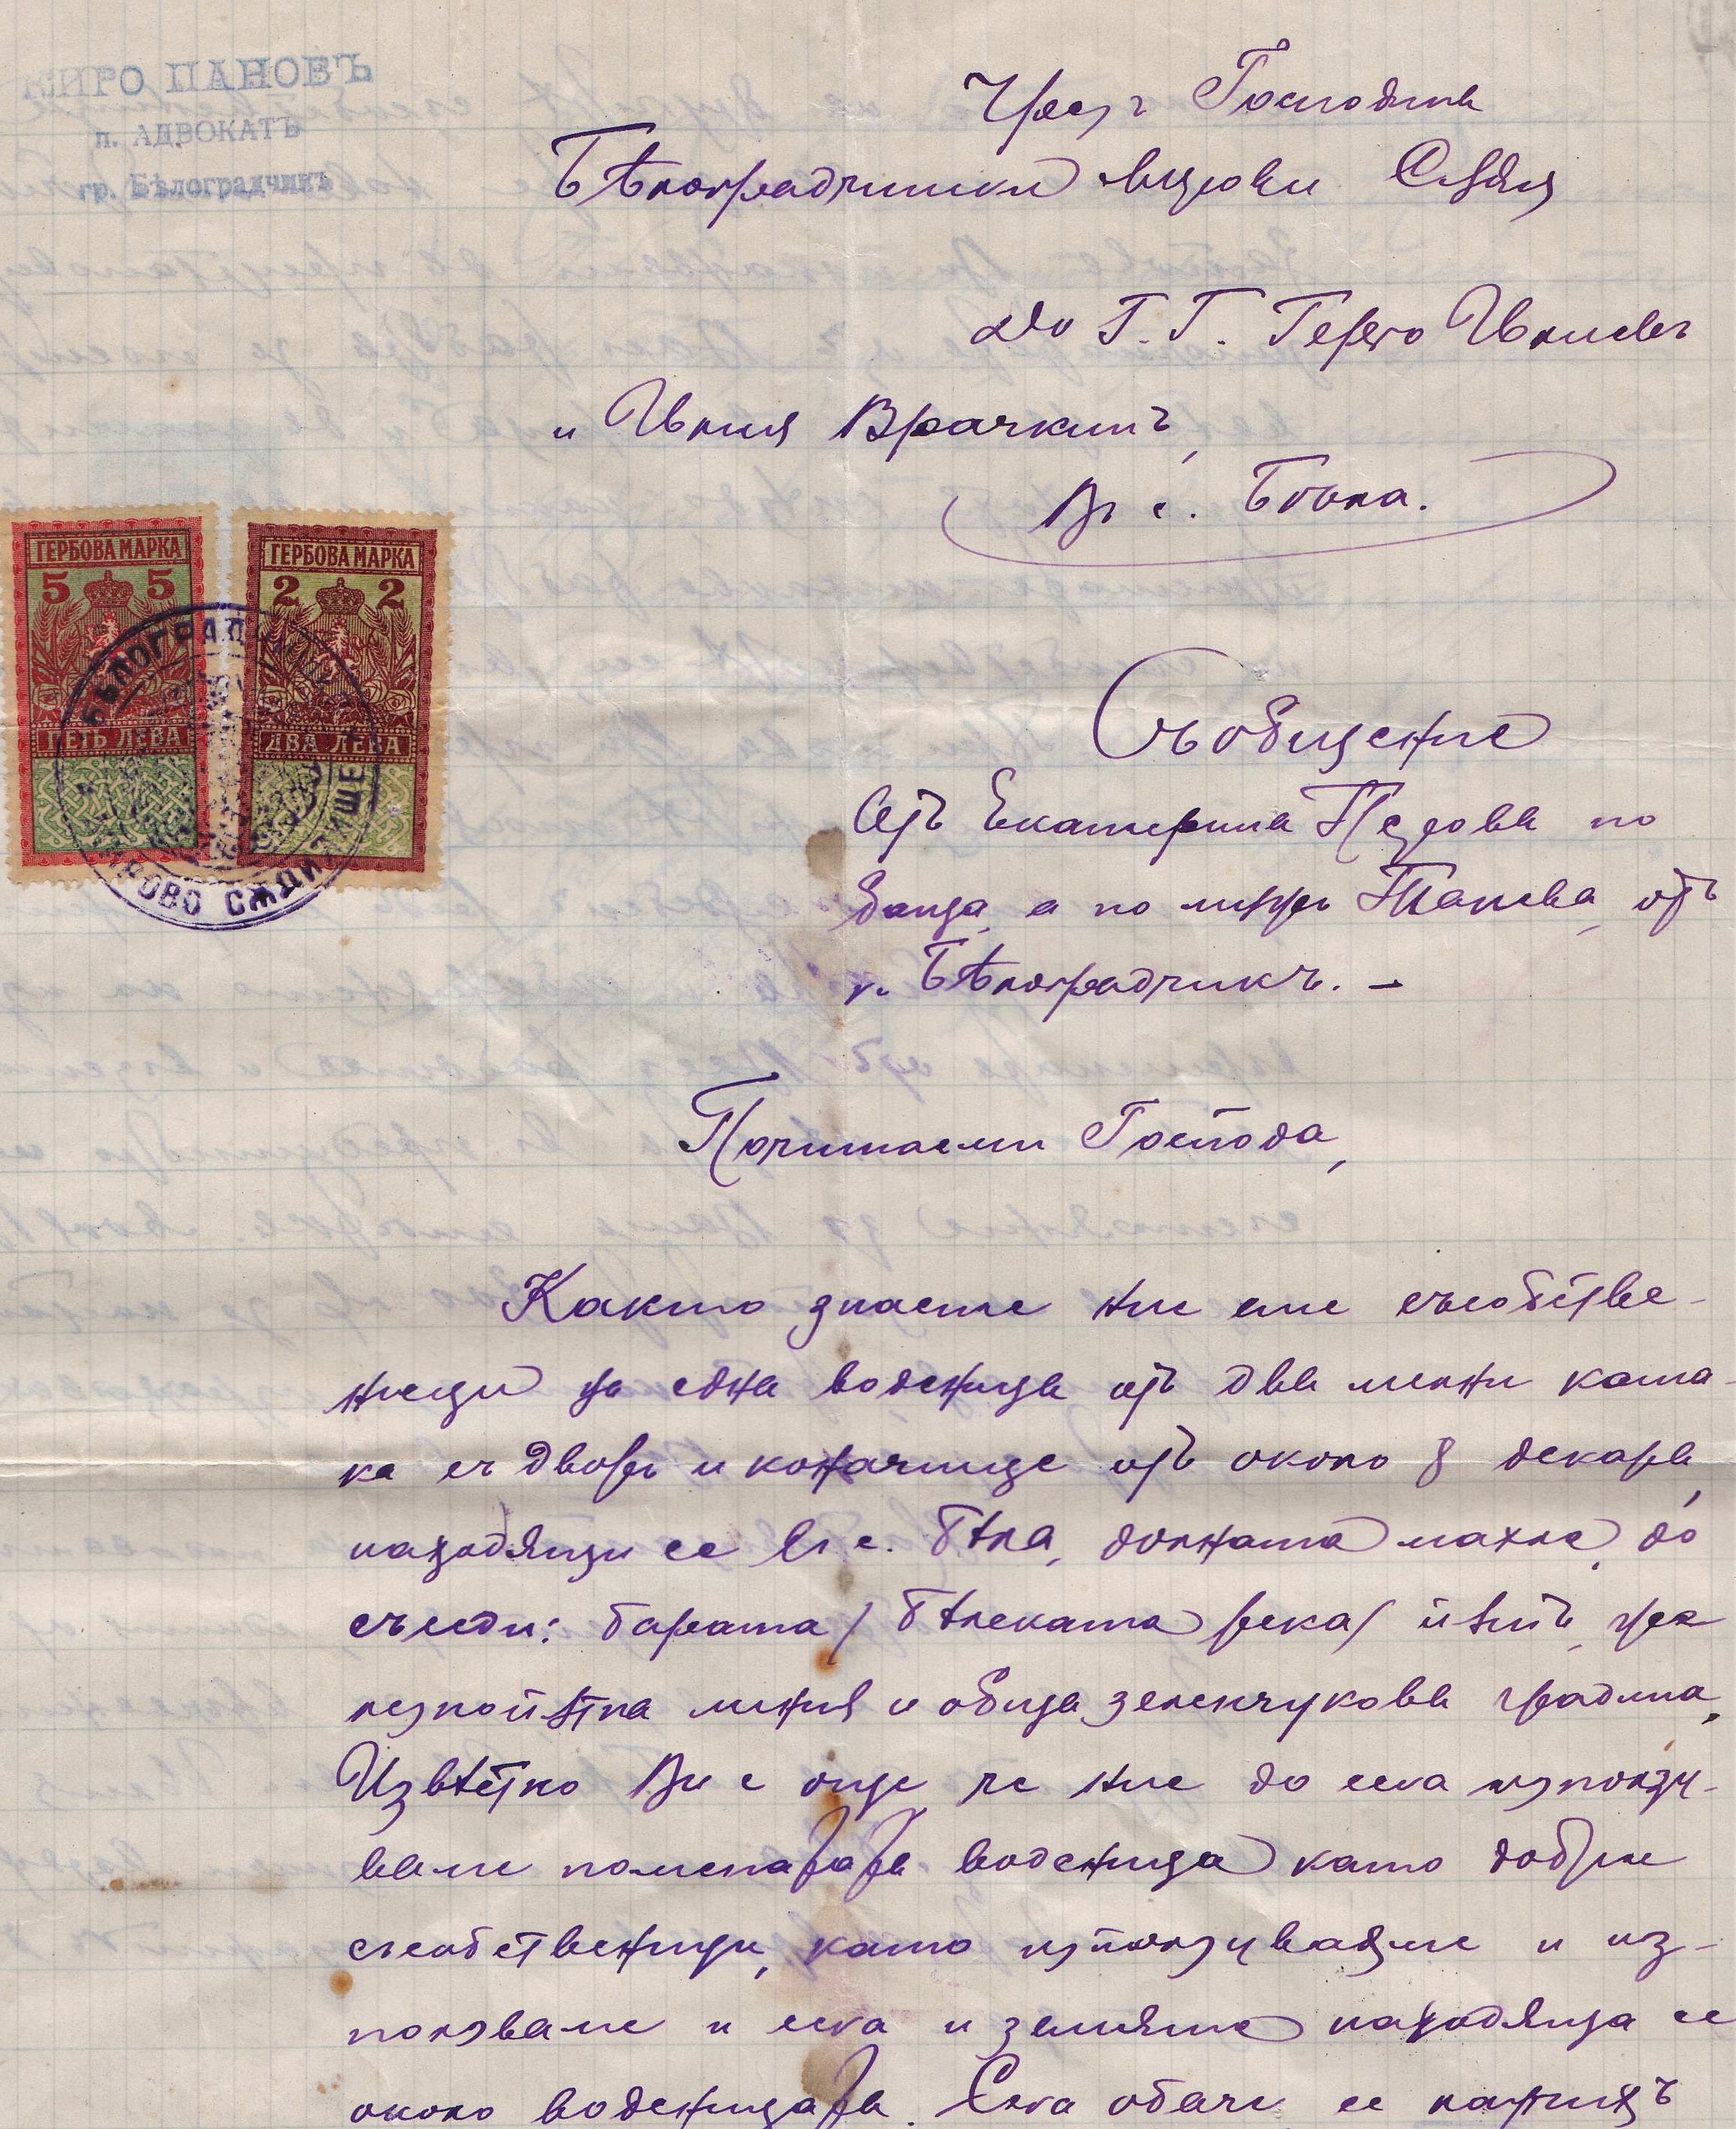 КИРО ПАНОВЪ
п. АДВОКАТЪ
гр. Бѣлоградчикъ
Чрезъ Господина
Бѣлоградчишки Мирови Сѫдия
До Г. Г. Герго Илиевъ
и Илия Врачкинъ,
Въ с. Бѣла.
ГЕРБОВА МАРКА
5 5
ПЕТЬ ЛЕВА
ГЕРБОВА МАРКА
2 2
ДВА ЛЕВА
МИРОВО СѪДИЛИЩЕ
Съобщение
Отъ Екатерина Петрова по
баща, а по мѫжъ Панова, отъ
г. Бѣлоградчикъ. –
Почитаеми Господа,
Както знаете ние сме съсобстве-
ници на една воденица отъ два мелни кама-
ка съ дворъ и коначище отъ около 8 декара,
находящи се въ с. Бѣла, долната махла, до
съседи: барата / Бѣлската река / пѫть, же-
лезнопѫтна линия и обща зеленчукова градина,
Извѣстно Ви е още че ние до сега използу-
ваме помената воденица като добри
съсобственици, като използувахме и из-
ползваме и сега и земята находяща се
около воденицата. Сега обаче се